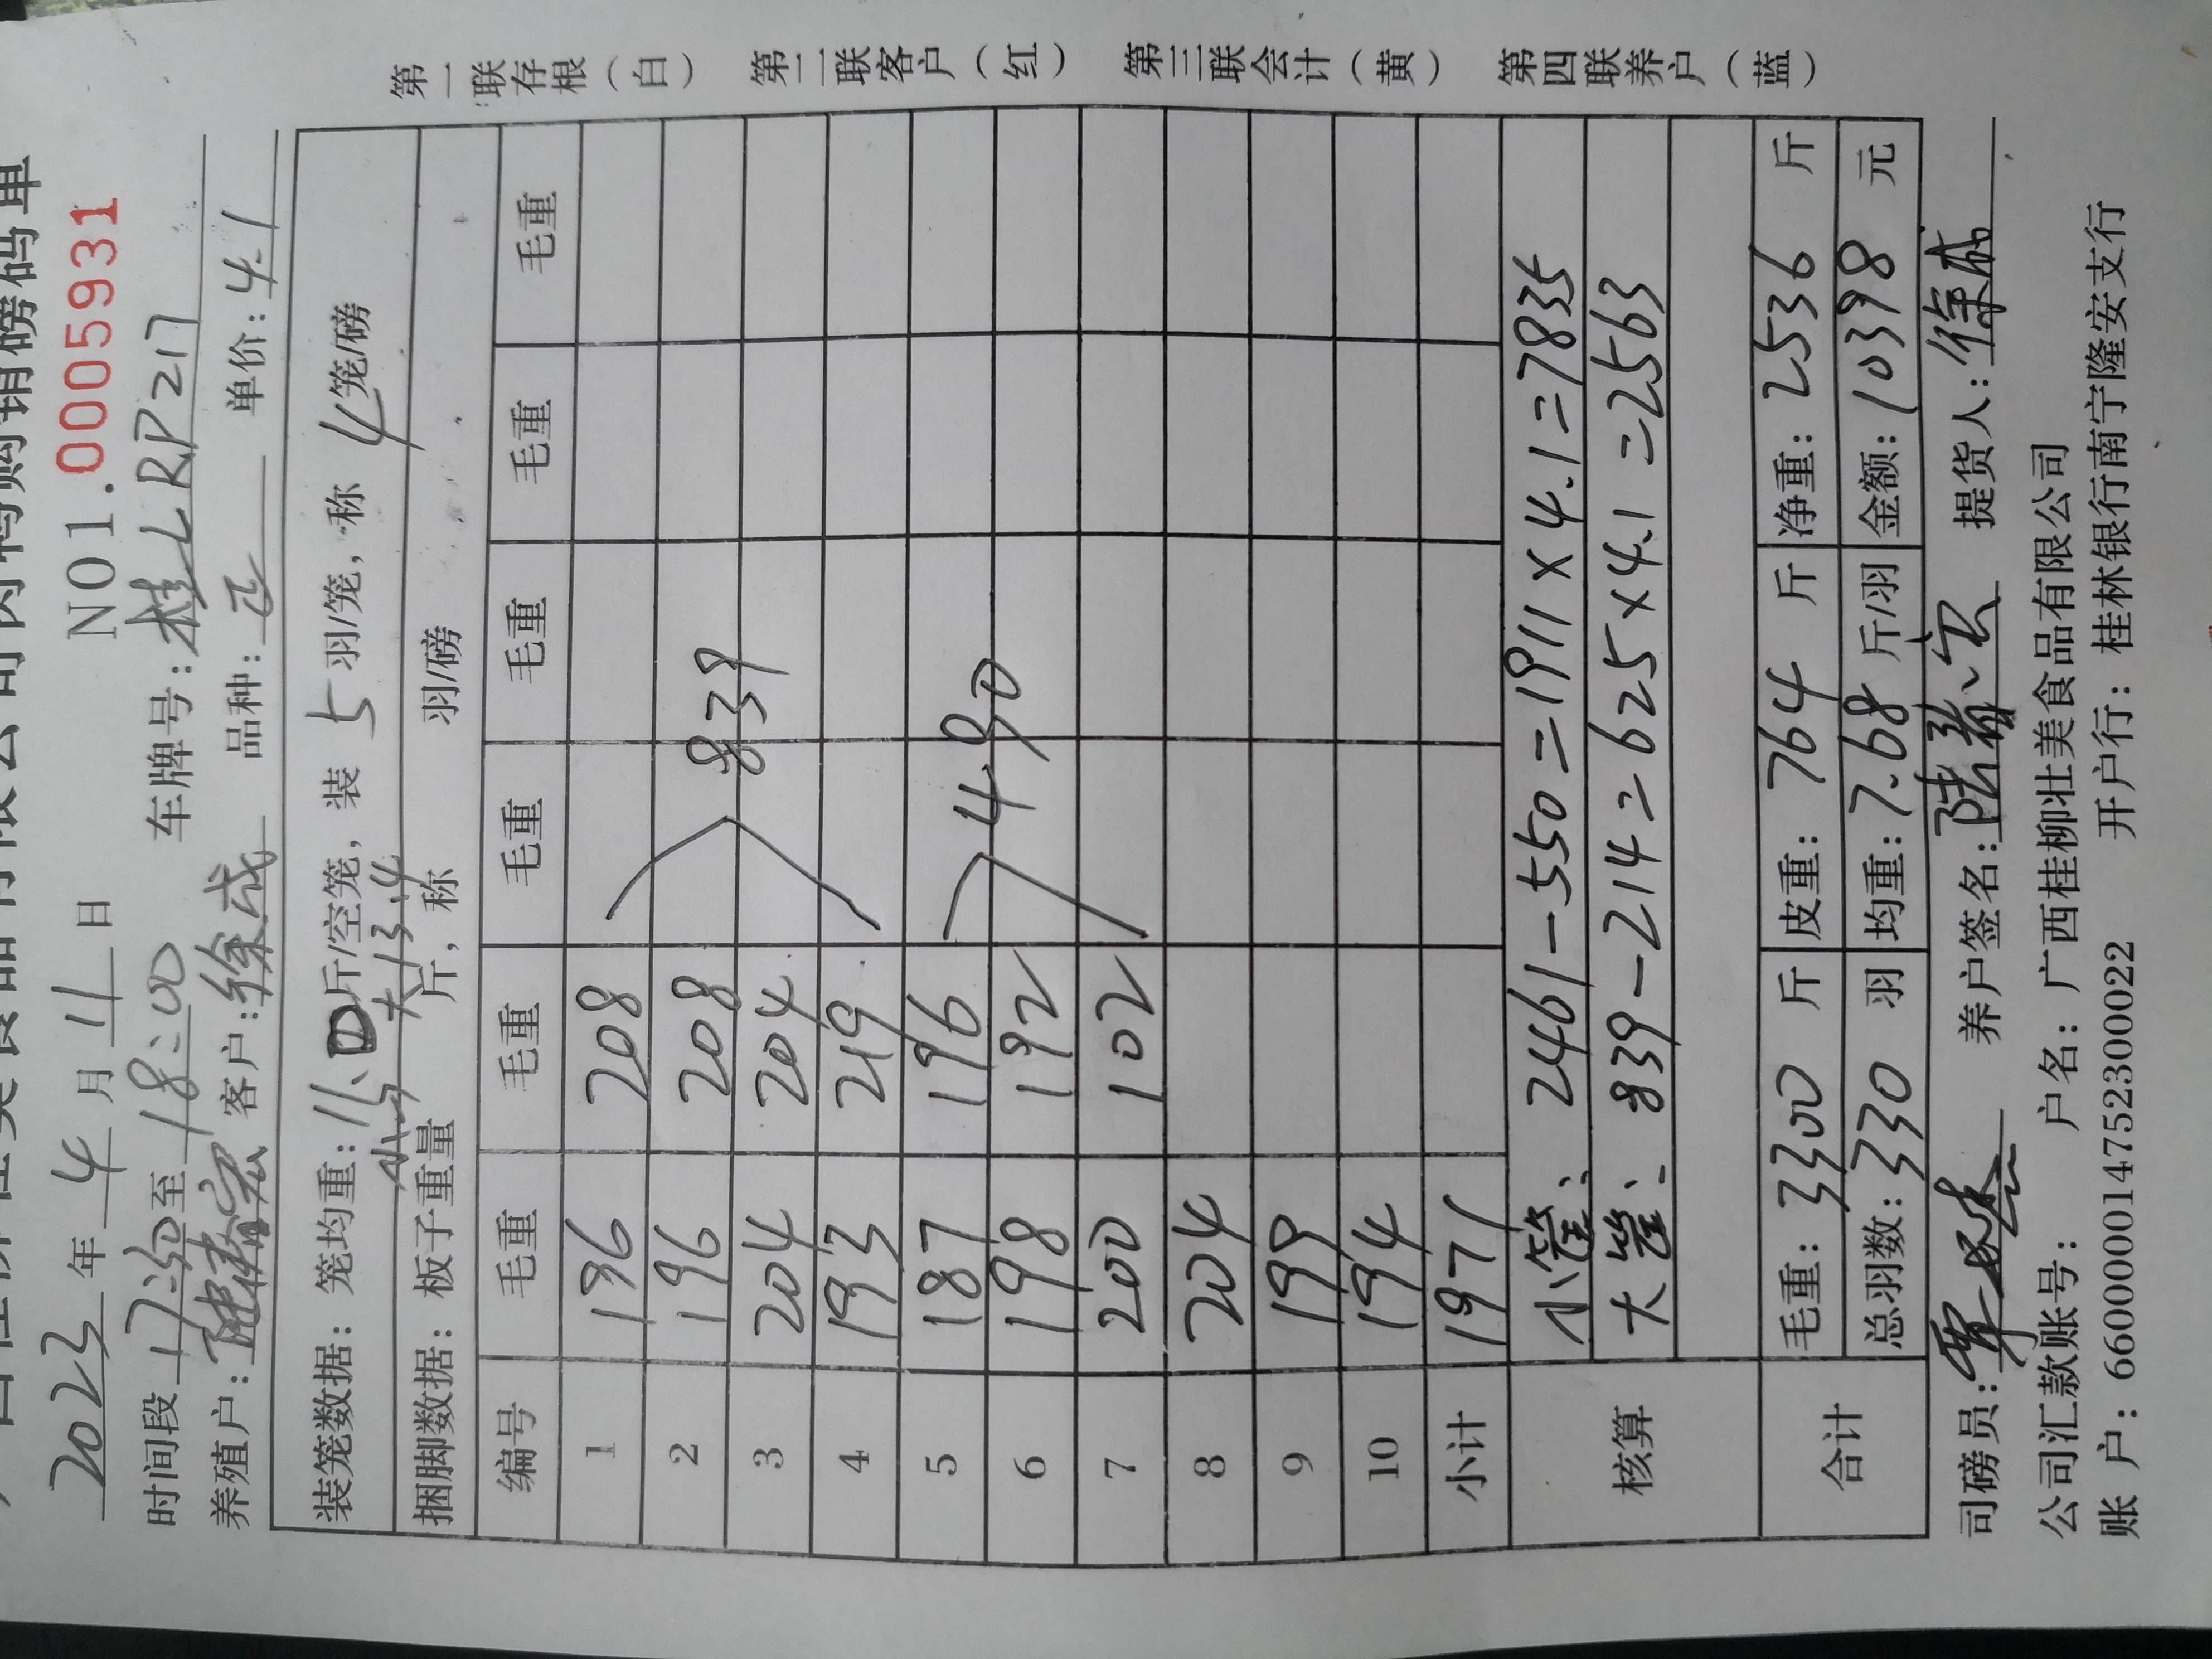 NO1.0005931
2023年4月11日
时间段17:50至18:00 车牌号:桂LRP217
养殖户: 客户:徐成 品种: 单价:4.1
装笼数据:笼均重: 斤/空笼,装5羽/笼,称4笼/磅
大13.4
捆脚数据:板子重量 斤,称 羽/磅
编号 毛重 毛重 毛重 毛重 毛重 毛重
1 196 208
2 196 208
3 204 204 839
4 193 219
5 187 196
6 198 192 490
7 200 102
8 204
9 199
10 194
小计 1971
核算 小筐、2461-550=1911×4.1=7835
大筐、839-214=625×4.1=2563
合计 毛重:3300斤 皮重:764斤 净重:2536斤
总羽数:330羽 均重:7.68斤/羽 金额:10398元
司磅员: 养户签名: 提货人:徐成
公司汇款账号: 户名:广西桂柳壮美食品有限公司
账户:660000014752300022 开户行:桂林银行南宁隆安支行
第一联存根(白) 第二联客户(红) 第三联会计(黄) 第四联养户(蓝)